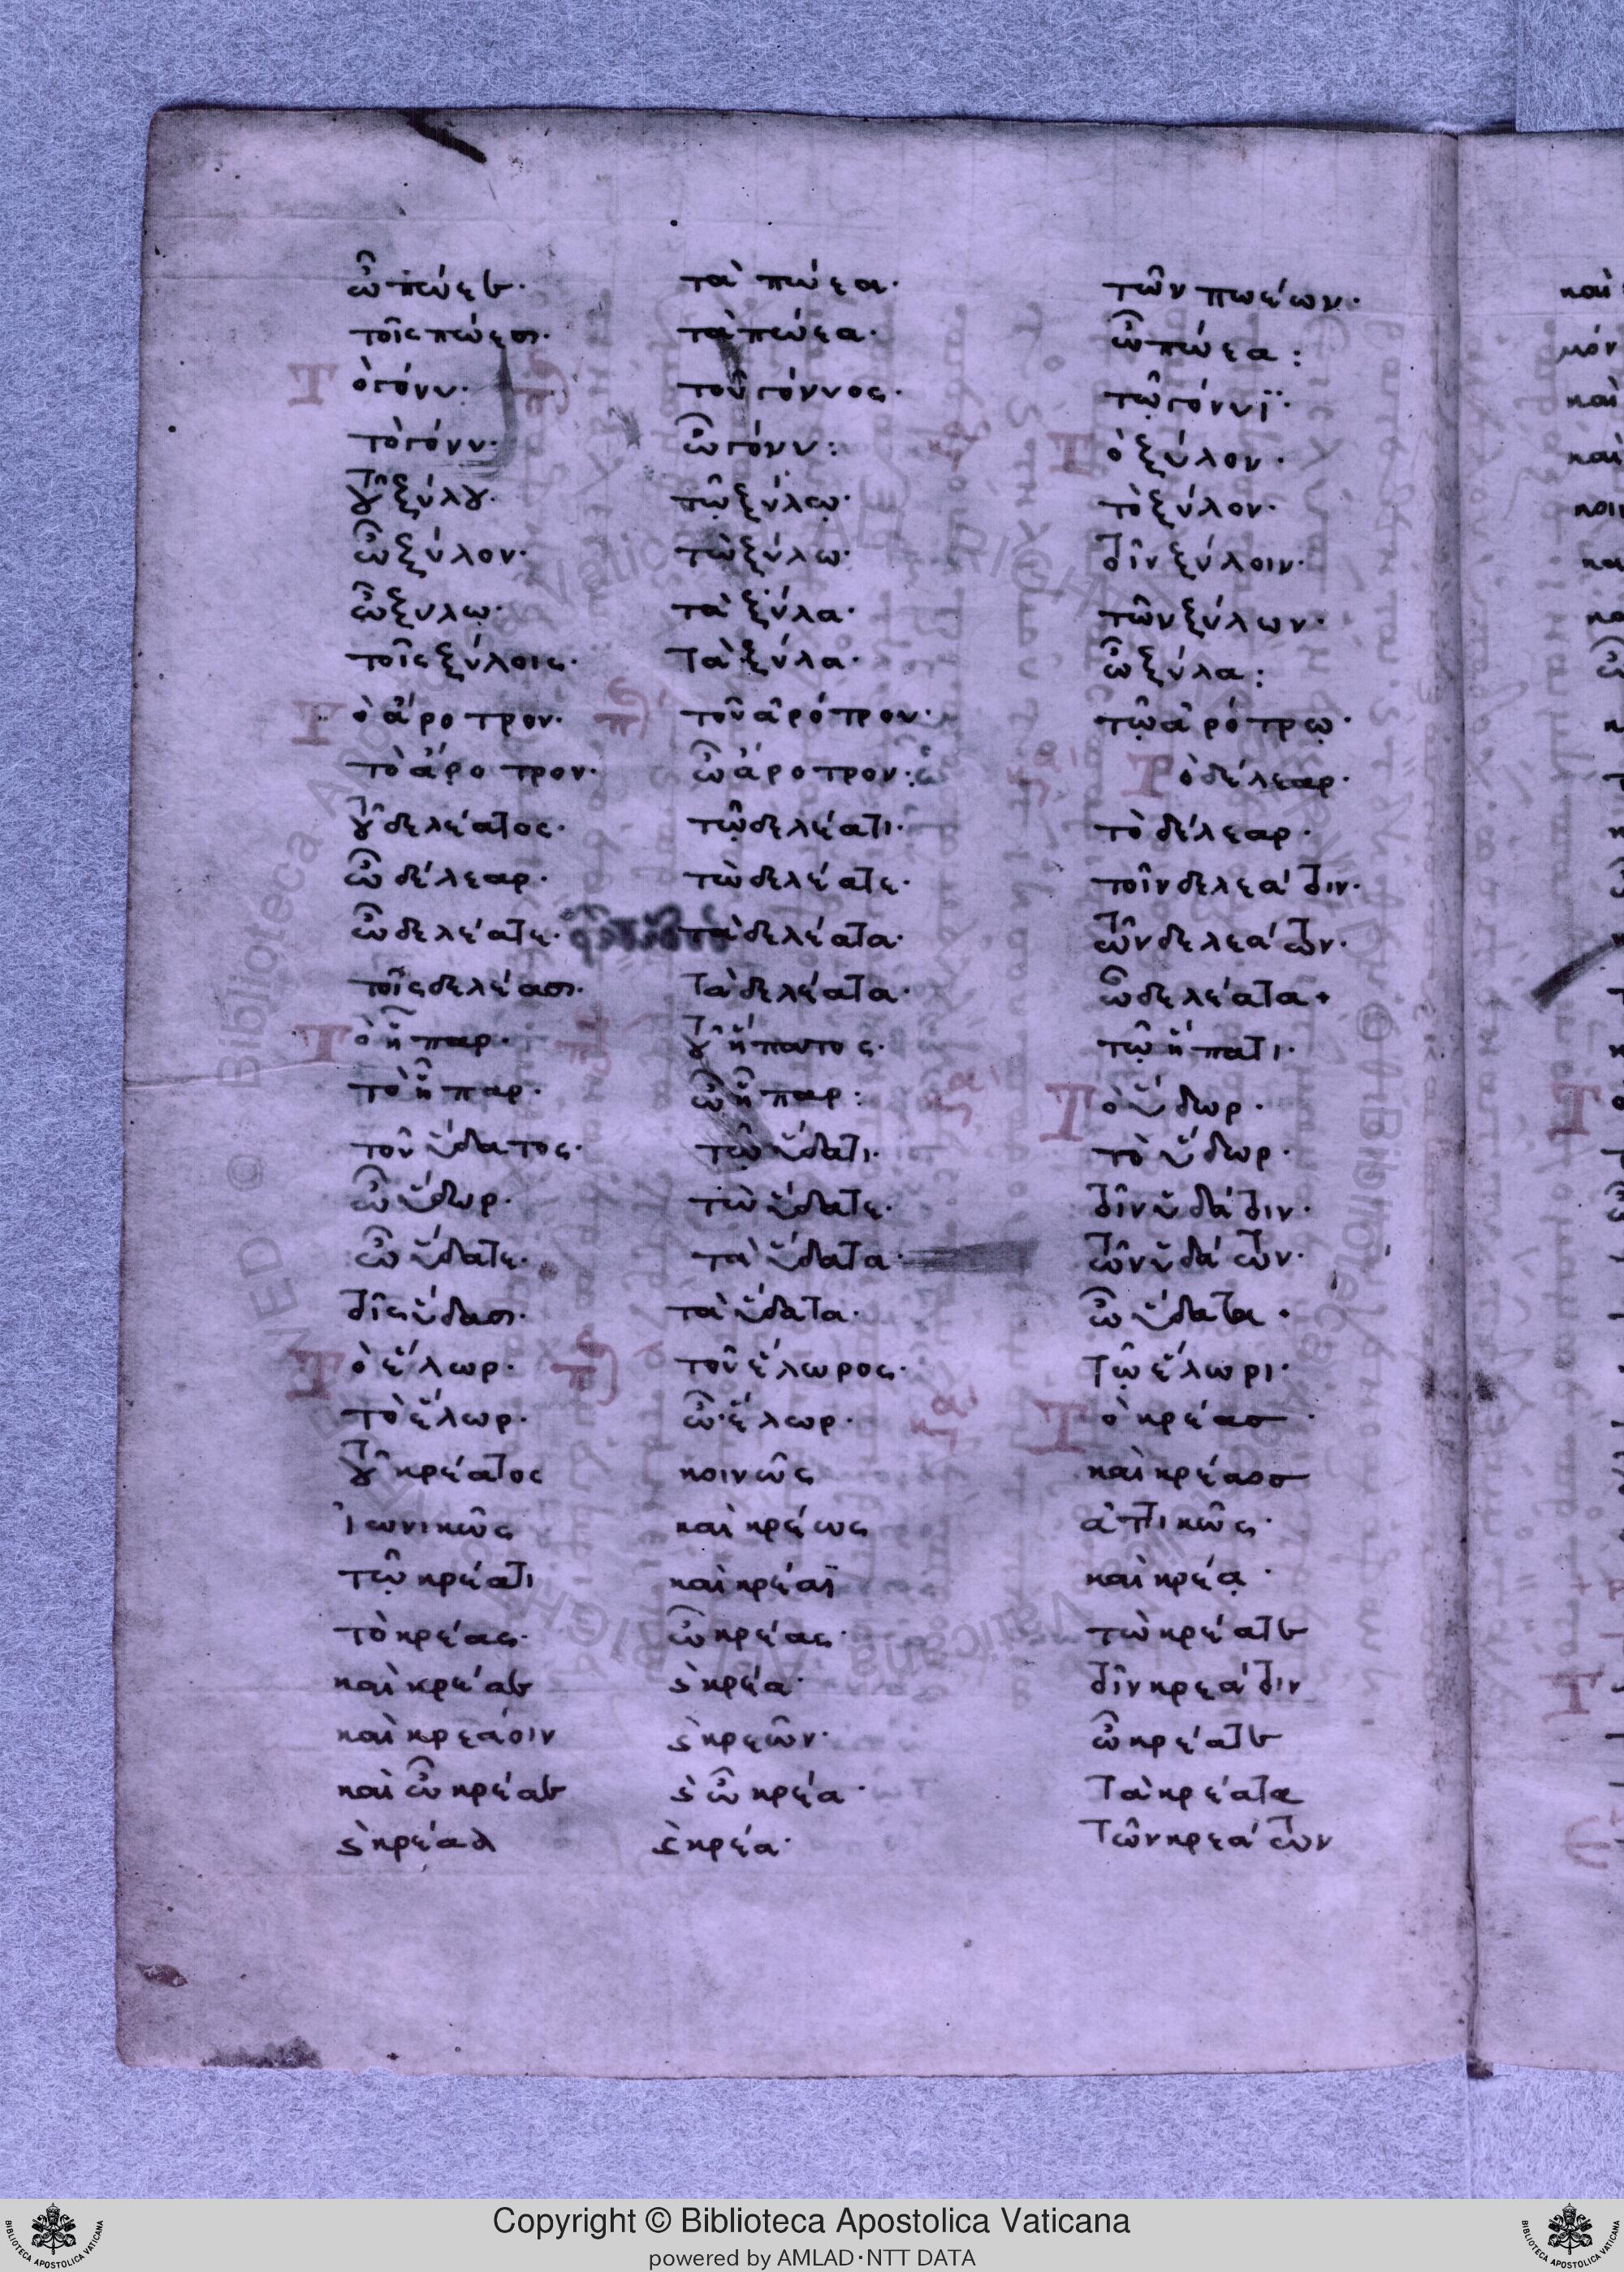 ὦ πώεε· τὰ πώεα· τῶν πωέων·
τοῖς πώεσι· τὰ πώεα· ὦ πώεα:
Τὸ γόνυ· τοῦ γόνυος· τῷ γόνυϊ·
τὸ γόνυ· ὦ γόνυ: Τὸ ξύλον·
τοῦ ξύλου· τῷ ξύλῳ· τὸ ξύλον·
ὦ ξύλον· τὼ ξύλω· τοῖν ξύλοιν·
ὦ ξυλω· τὰ ξύλα· τῶν ξύλων·
τοῖς ξύλοις· τὰ ξύλα· ὦ ξύλα:
Τὸ ἄροτρον· τοῦ ἀρότρου· τῷ ἀρότρῳ·
τὸ ἄροτρον· ὦ ἄροτρον: Τὸ δέλεαρ·
τοῦ δελέατος· τῷ δελέατι· τὸ δέλεαρ·
ὦ δέλεαρ· τὼ δελέατε· τοῖν δελεάτοιν·
ὦ δελέατε· τὰ δελέατα· τῶν δελεάτων·
τοῖς δελέασι· τὰ δελέατα· ὦ δελέατα+
Τὸ ἧπαρ· τοῦ ἥπατος· τῷ ἥπατι·
τὸ ἧπαρ· ὦ ἧπαρ: Τὸ ὕδωρ·
τοῦ ὕδατος· τῷ ὕδατι· τὸ ὕδωρ·
ὦ ὕδωρ· τὼ ὕδατε· τοῖν ὑδάτοιν·
ὦ ὕδατε· τὰ ὕδατα· τῶν ὑδάτων·
τοῖς ὕδασι· τὰ ὕδατα· ὦ ὕδατα·
Τὸ ἕλωρ· τοῦ ἕλωρος· τῷ ἕλωρι·
τὸ ἕλωρ· ὦ ἕλωρ· Τὸ κρέασ·
τοῦ κρέατος κοινῶς καὶ κρέαοσ
ἰωνικῶς καὶ κρέως ἀττικῶς·
τῷ κρέατι καὶ κρέαϊ καὶ κρέᾳ·
τὸ κρέας· ὦ κρέας· τὼ κρέατε
καὶ κρέαε ϛ κρέα· τοῖν κρεάτοιν
καὶ κρεάοιν ϛ κρεῶν· ὦ κρέατε
καὶ ὦ κρέαε ϛ ὦ κρέα· τὰ κρέατα
ϛ κρέαα ϛ κρέα· τῶν κρεάτων
Copyright © Biblioteca Apostolica Vaticana
powered by AMLAD·NTT DATA